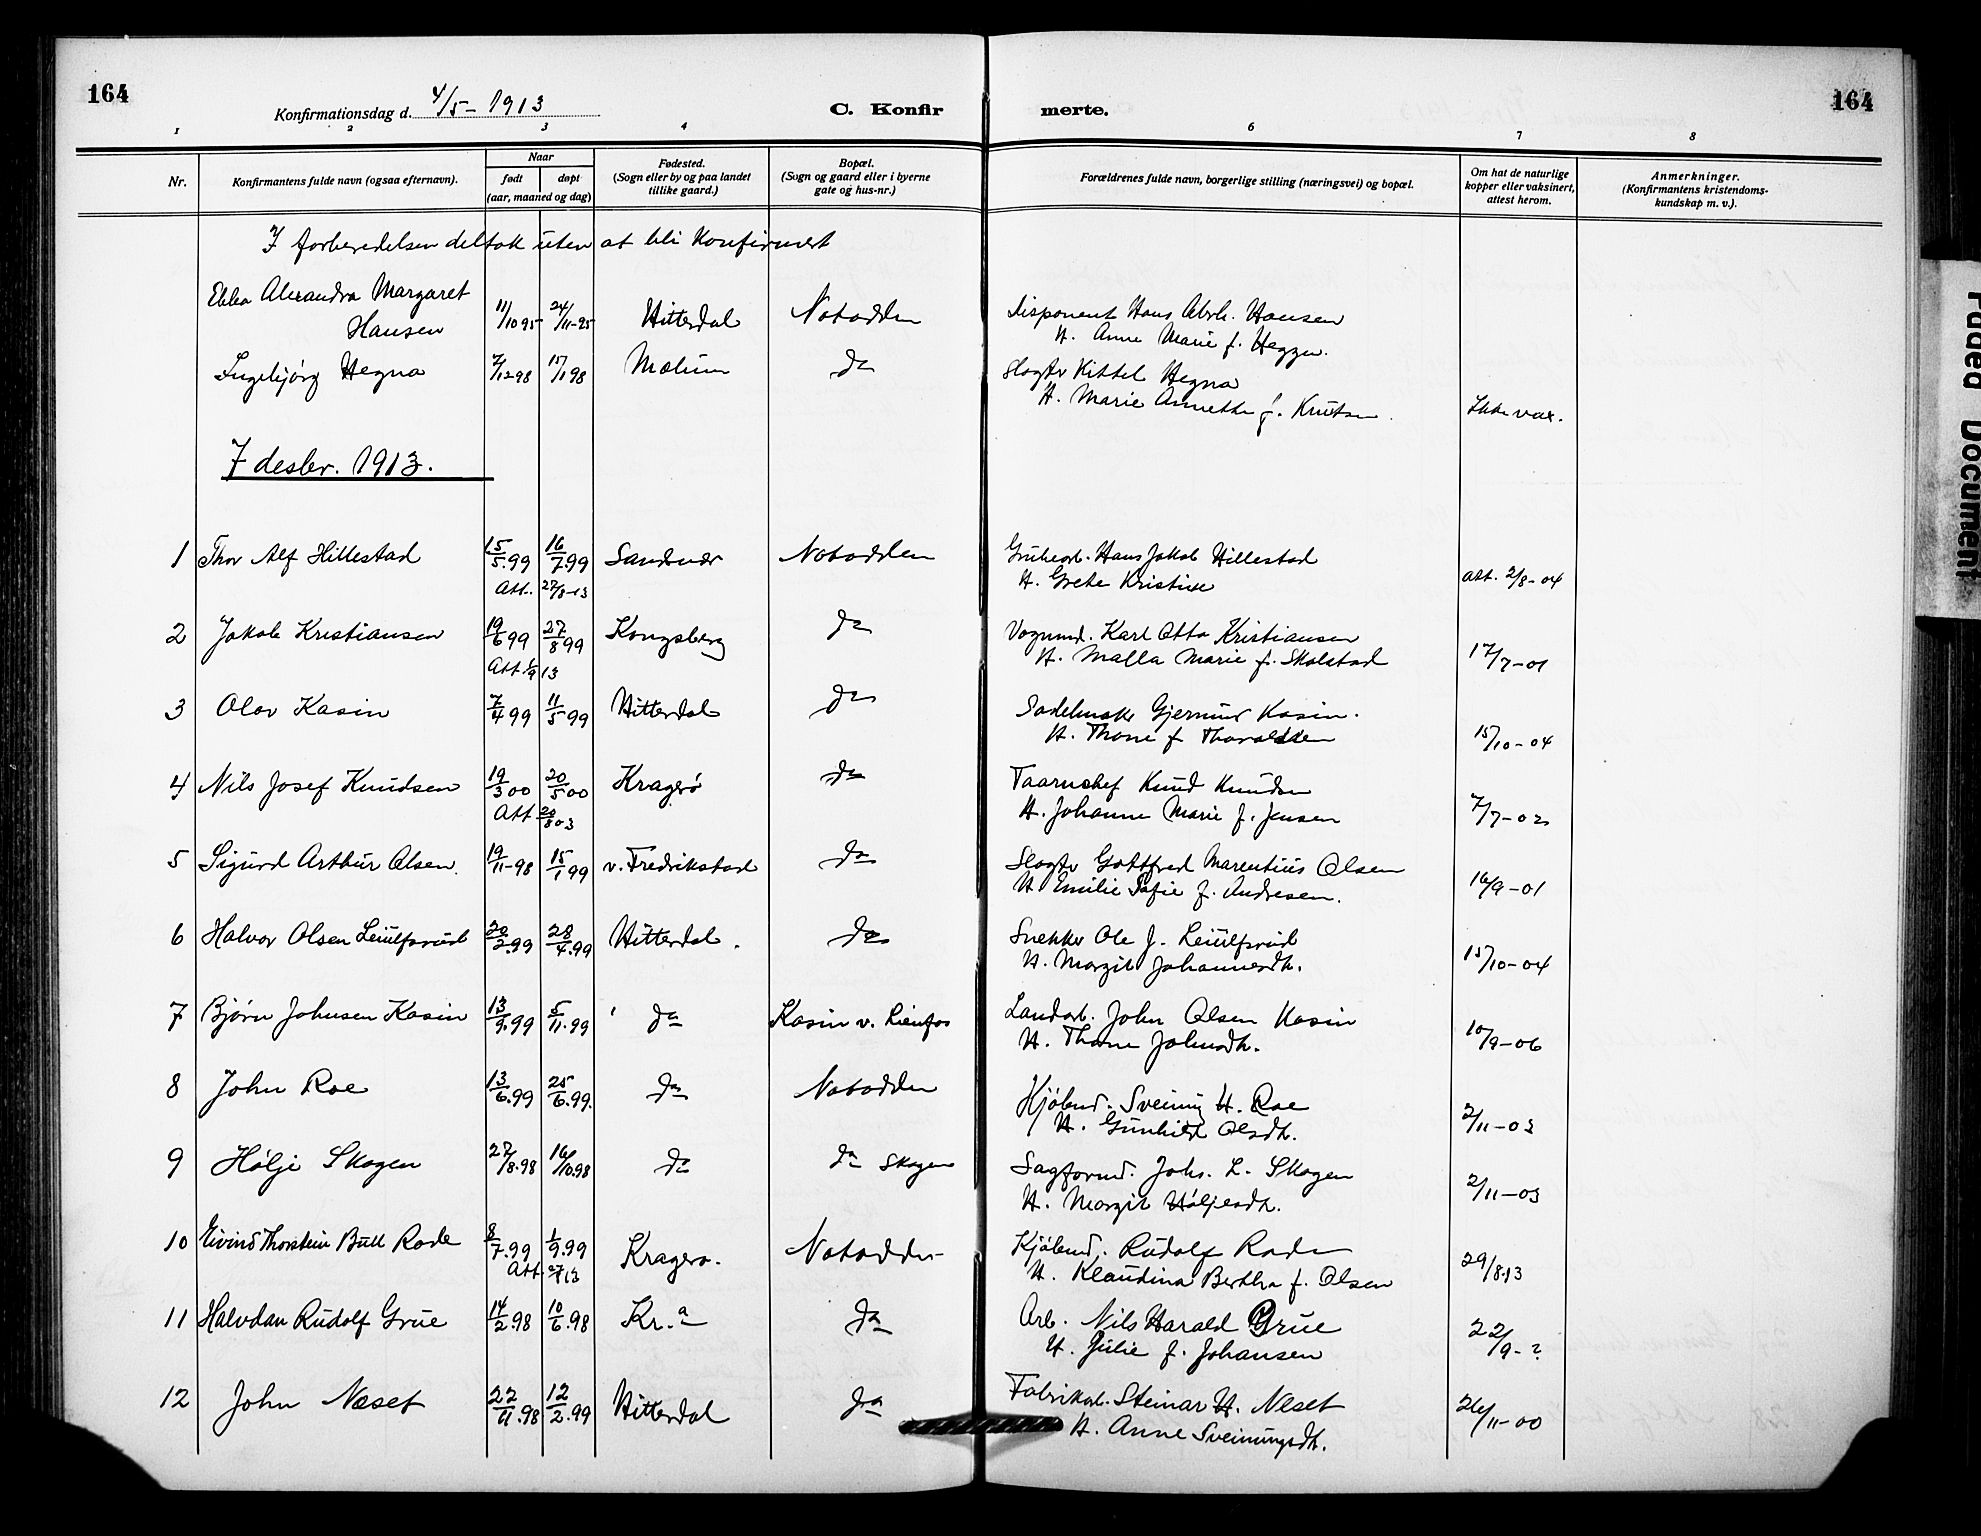 164
Konfirmationsdag d. 4/5-1913
C. Konfirmerte.
164
1 2 3 4 6 7 8
Nr.
Konfirmantens fulde navn (ogsaa efternavn).
Naar
født døpt
(aar, maaned og dag)
Fødested.
(Sogn eller by og paa landet
tillike gaard.)
Bopæl.
(Sogn og gaard eller i byerne
gate og hus-nr.)
Forældrenes fulde navn, borgerlige stilling (næringsvei) og bopæl.
Om hat de naturlige
kopper eller vaksinert,
attest herom.
Anmerkninger.
(Konfirmantens kristendoms-
kundskap m. v.).
I forberedelsen deltok uten at bli konfirmert
Ebba Alexandra Margaret 11/10 95 24/11-95 Hitterdal Notodden Disponent Hans Abrh. Hansen
Hansen H. Anne Marie f. Heggen.
Ingebjørg Hegna 7/12 98 15/1 98 Mælum do Slagter Kittel Hegna
H. Marie Annette f. Knutsen. Ikke vax.
7 desbr. 1913.
1 Thor Alf Hillestad 15/5.99 16/7.99 Sandsvær Notodden Grubearb. Hans Jakob Hillestad
Att. 27/8-13 H. Grete Kristine att. 2/8-04
2 Jakob Kristiansen 19/6 99 27/8 99 Kongsberg do Vognmd. Karl Otto Kristiansen
Att 1/9 13 H. Malla Marie f. Skolstad 17/7-01
3 Olav Kasin 7/4 99 11/5 99 Hitterdal do Sadelmaker Gjermund Kasin.
H. Thone f Thoraldsen 15/10-04
4 Nils Josef Knudsen 19/3 00 20/5 00 Kragerø do Taarnchef Knud Knudsen
Att 20/8 03 H. Johanne Marie f. Jensen 7/7-02
5 Sigurd Arthur Olsen. 19/11-98 15/1 99 v. Fredrikstad do Slagter Gottfred Marentius Olsen
H Emilie Sofie f. Andresen. 16/9-01
6 Halvor Olsen Leiulfsrud 20/2.99 28/4.99 Hitterdal. do Snekker Ole J. Leiulfsrud
H. Margit Johannesdt. 15/10-04
7 Bjørn Johnsen Kasin 13/9.99 5/11.99 do Kasin v. Lienfos Landarb. John Olsen Kasin
H. Thone Johnsdt. 10/9-06
8 John Roe 13/6.99 25/6.99. do Notodden Kjøbmd. Sveinung H. Roe
H. Gunhild Olsdt. 2/11-03
9 Hølje Skogen 27/8.98 16/10.98 do do Skogen Sagformd. Johs. L. Skogen
H. Margit Høljesdt. 2/11-03
10 Eivind Thorstein Bull Rode 8/7.99 1/9.99 Kragerø. Notodden Kjøbmd. Rudolf Rode
Att. H. Klaudina Bertha f. Olsen 29/8.13
11 Halvdan Rudolf Grue 14/2.98 10/6.98 Kr.a do Arb. Nils Harald Grue
H. Julie f. Johansen 22/9-?
12 John Næset 22/11.98 12/2.99 Hitterdal do Fabrikarb. Steinar H. Næset
H. Anne Sveinungsdt. 26/11-00
Faded Document